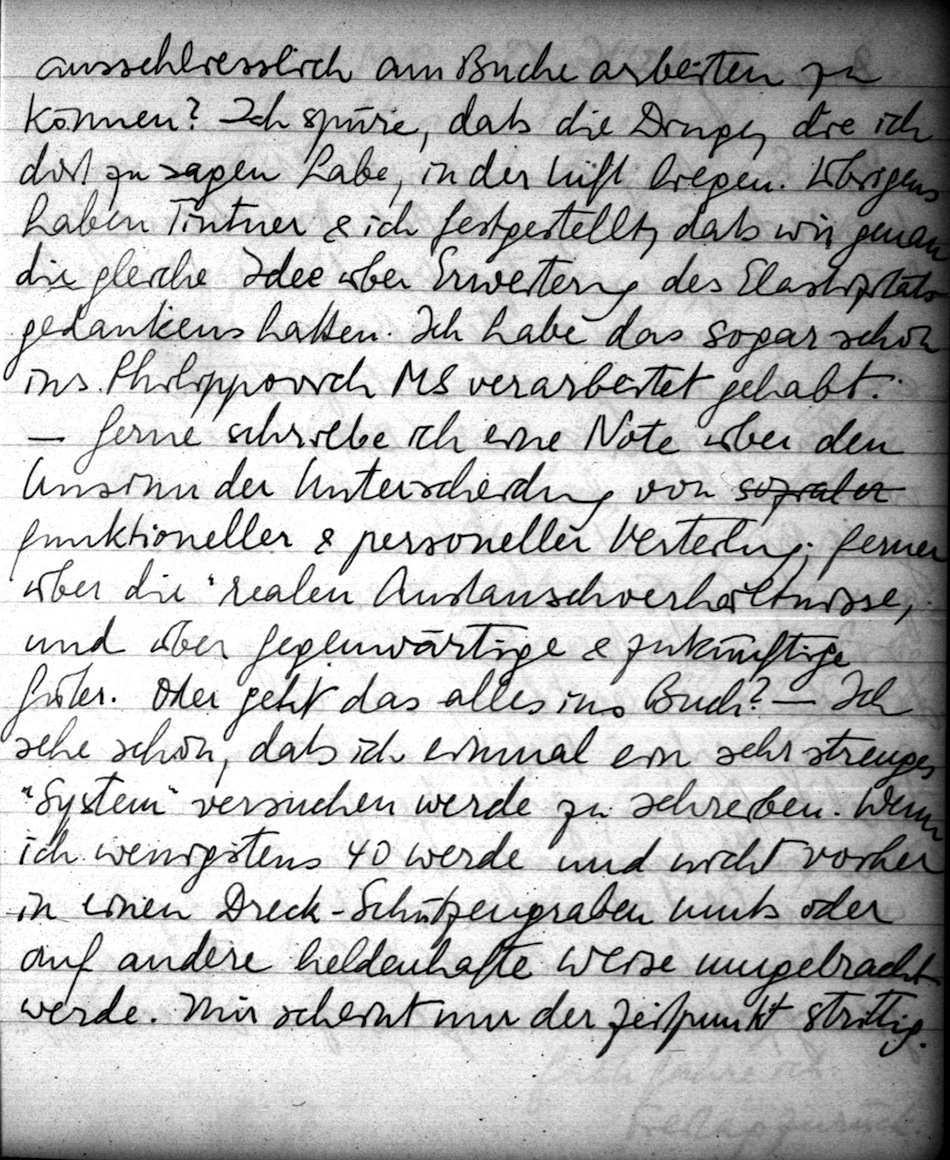 ausschliesslich am Buche arbeiten zu
können? Ich spüre, dass die Dinge, die ich
dort zu sagen habe, in der Luft liegen. Übrigens
haben Tintner & ich festgestellt, dass wir genau
die gleiche Idee über Erweiterung des Elastizitäts
gedankens hatten. Ich habe das sogar schon
ins Philippovich MS verarbeitet gehabt.
— Gerne schriebe ich eine Note über den
Unsinn der Unterscheidung von sozialer
funktioneller & personeller Verteilung; ferner
über die "realen Austauschverhältnisse",
und über gegenwärtige & zukünftige
Güter. Oder geht das alles ins Buch? — Ich
sehe schon, dass ich einmal ein sehr strenges
"System" versuchen werde zu schreiben. Wenn
ich wenigstens 40 werde und nicht vorher
in einen Dreck-Schützengraben muss oder
auf andere heldenhafte Weise umgebracht
werde. Mir scheint nur der Zeitpunkt strittig.